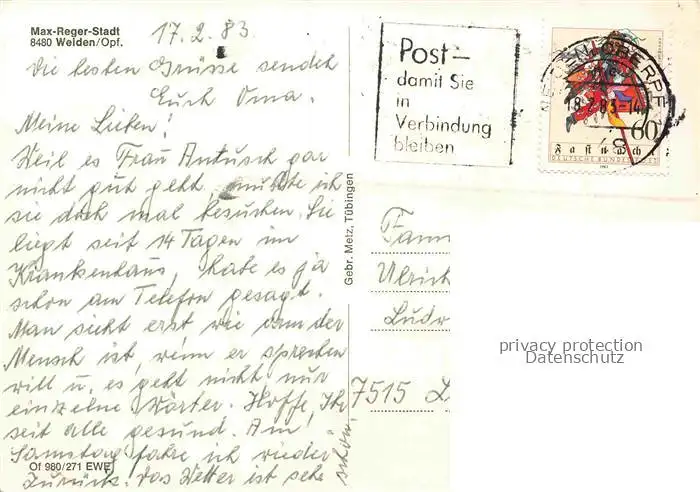 Max-Reger-Stadt
8480 Weiden/Opf.
17.2.83
Die besten Grüsse sendet
Euch Oma.
Meine Lieben!
Weil es Frau Antusch gar
nicht gut geht, mußte ich
sie doch mal besuchen. Sie
liegt seit 14 Tagen im
Krankenhaus, habe es ja
schon am Telefon gesagt.
Man sieht erst wie arm der
Mensch ist, wenn er sprechen
will u. es geht nicht, nur
einzelne Wörter. Hoffe, Ihr
seit alle gesund. Am
Samstag fahre ich wieder
zurück. Das Wetter ist sehr
schön.
Of 980/271 EWE
Gebr. Metz, Tübingen
Post–
damit Sie
in
Verbindung
bleiben
18.2.83-14
60
Fastnacht
DEUTSCHE BUNDESPOST
1983
Fam
Ulrich
Ludw
7515 L
privacy protection
Datenschutz